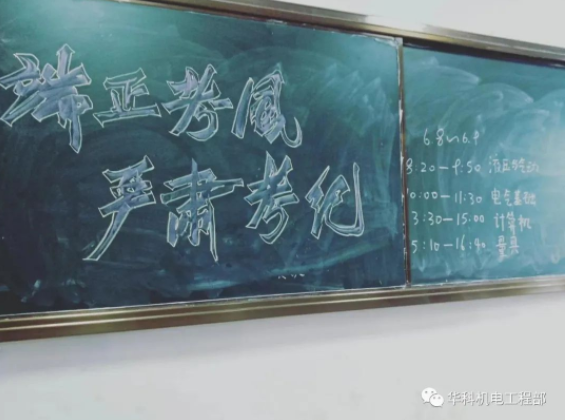 端正考风
严肃考纪
6.8~6.9
8:20-9:50 液压与气动
10:00-11:30 电气基础
3:30-15:00 计算机
5:10-16:40 量具
华科机电工程部